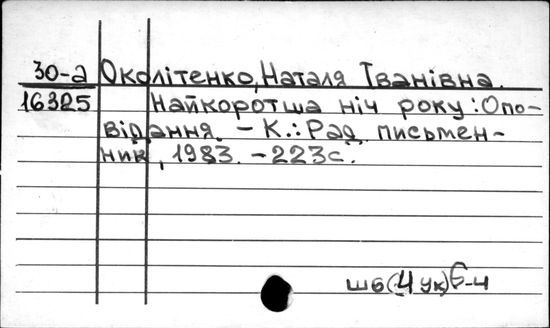 30-а Околітенко, Наталя Іванівна.
16325 Найкоротша ніч року: Опо-
відання. – К.: Рад. письмен-
ник, 1983. – 223с.
шб(4 Ук)6-4